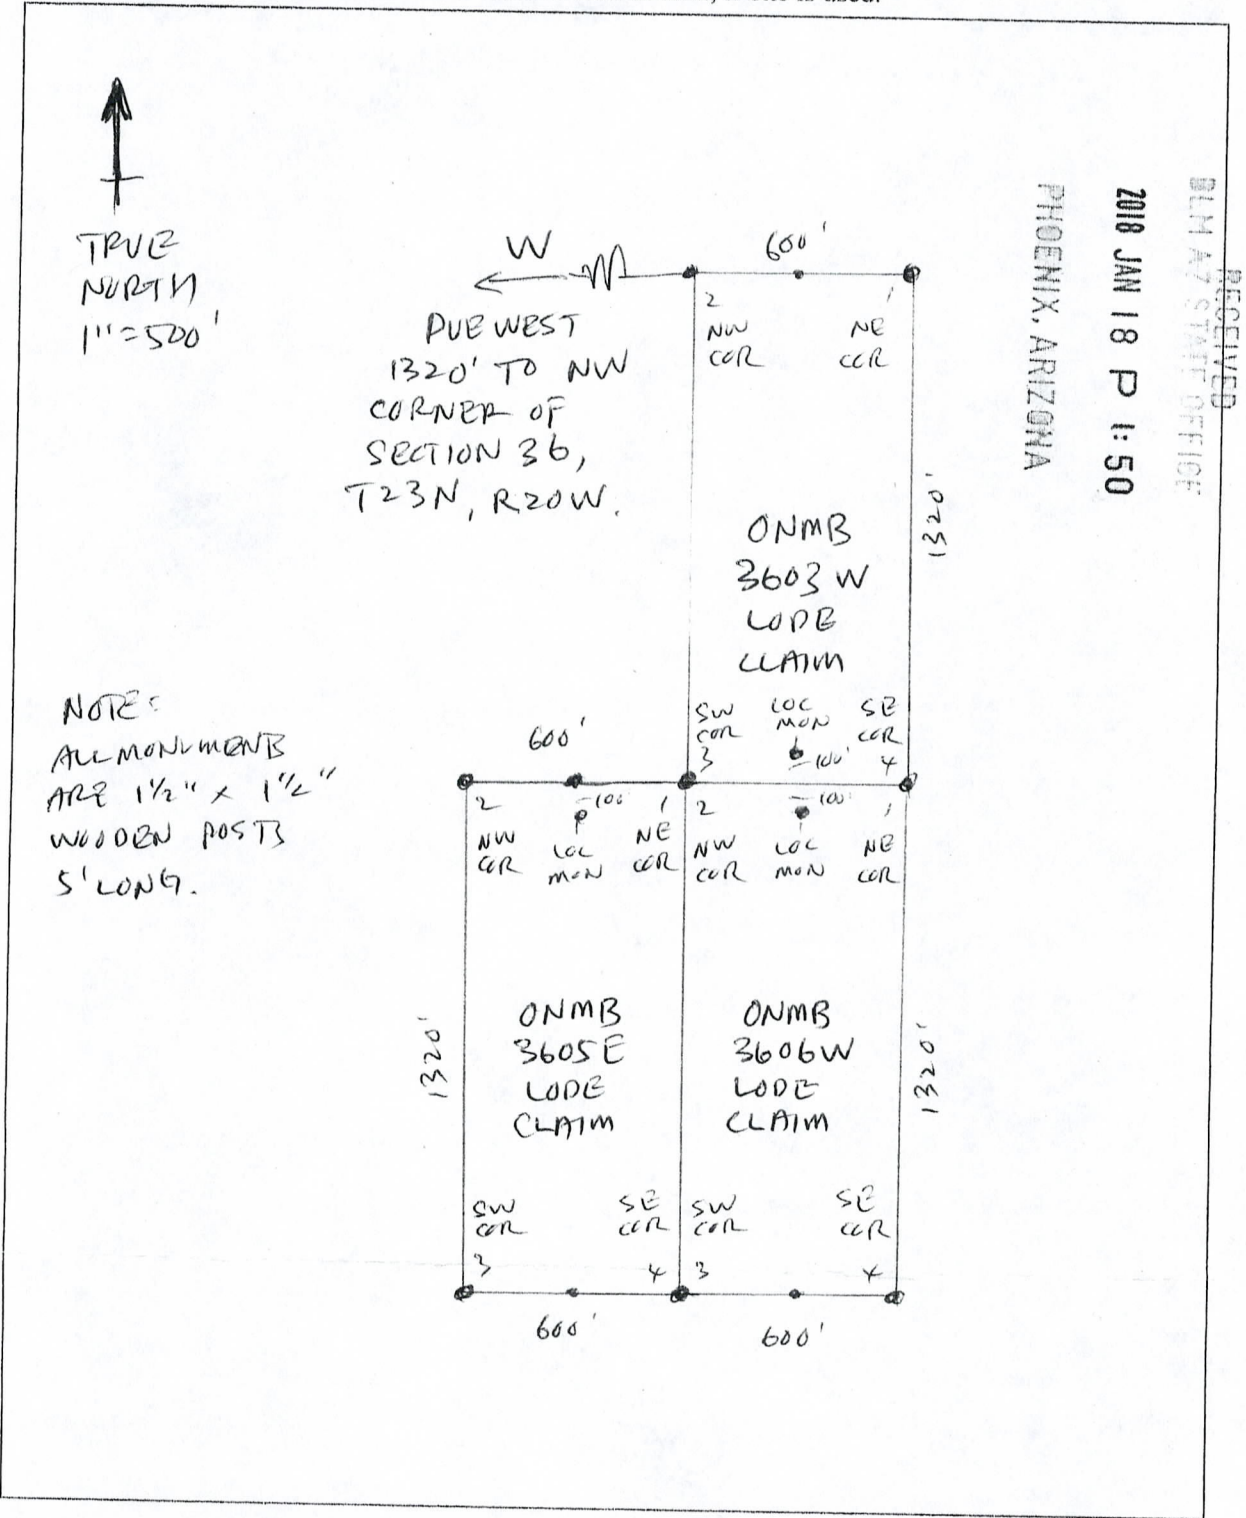 TRUE
NORTH
1"=500'
W
DUE WEST
1320' TO NW
CORNER OF
SECTION 36,
T23N, R20W.
600'
2
1
NW
COR
NE
COR
1320'
ONMB
3603 W
LODE
CLAIM
SW
COR
3
LOC
MON
100'
SE
COR
4
RECEIVED
BLM AZ STATE OFFICE
2018 JAN 18 P 1:50
PHOENIX, ARIZONA
NOTE:
ALL MONUMENTS
ARE 1 1/2" x 1 1/2"
WOODEN POSTS
5' LONG.
600'
2
NW
COR
100'
LOC
MON
1
NE
COR
2
NW
COR
100'
LOC
MON
1
NE
COR
1320'
ONMB
3605 E
LODE
CLAIM
ONMB
3606W
LODE
CLAIM
1320'
SW
COR
3
SE
COR
4
SW
COR
3
SE
COR
4
600'
600'